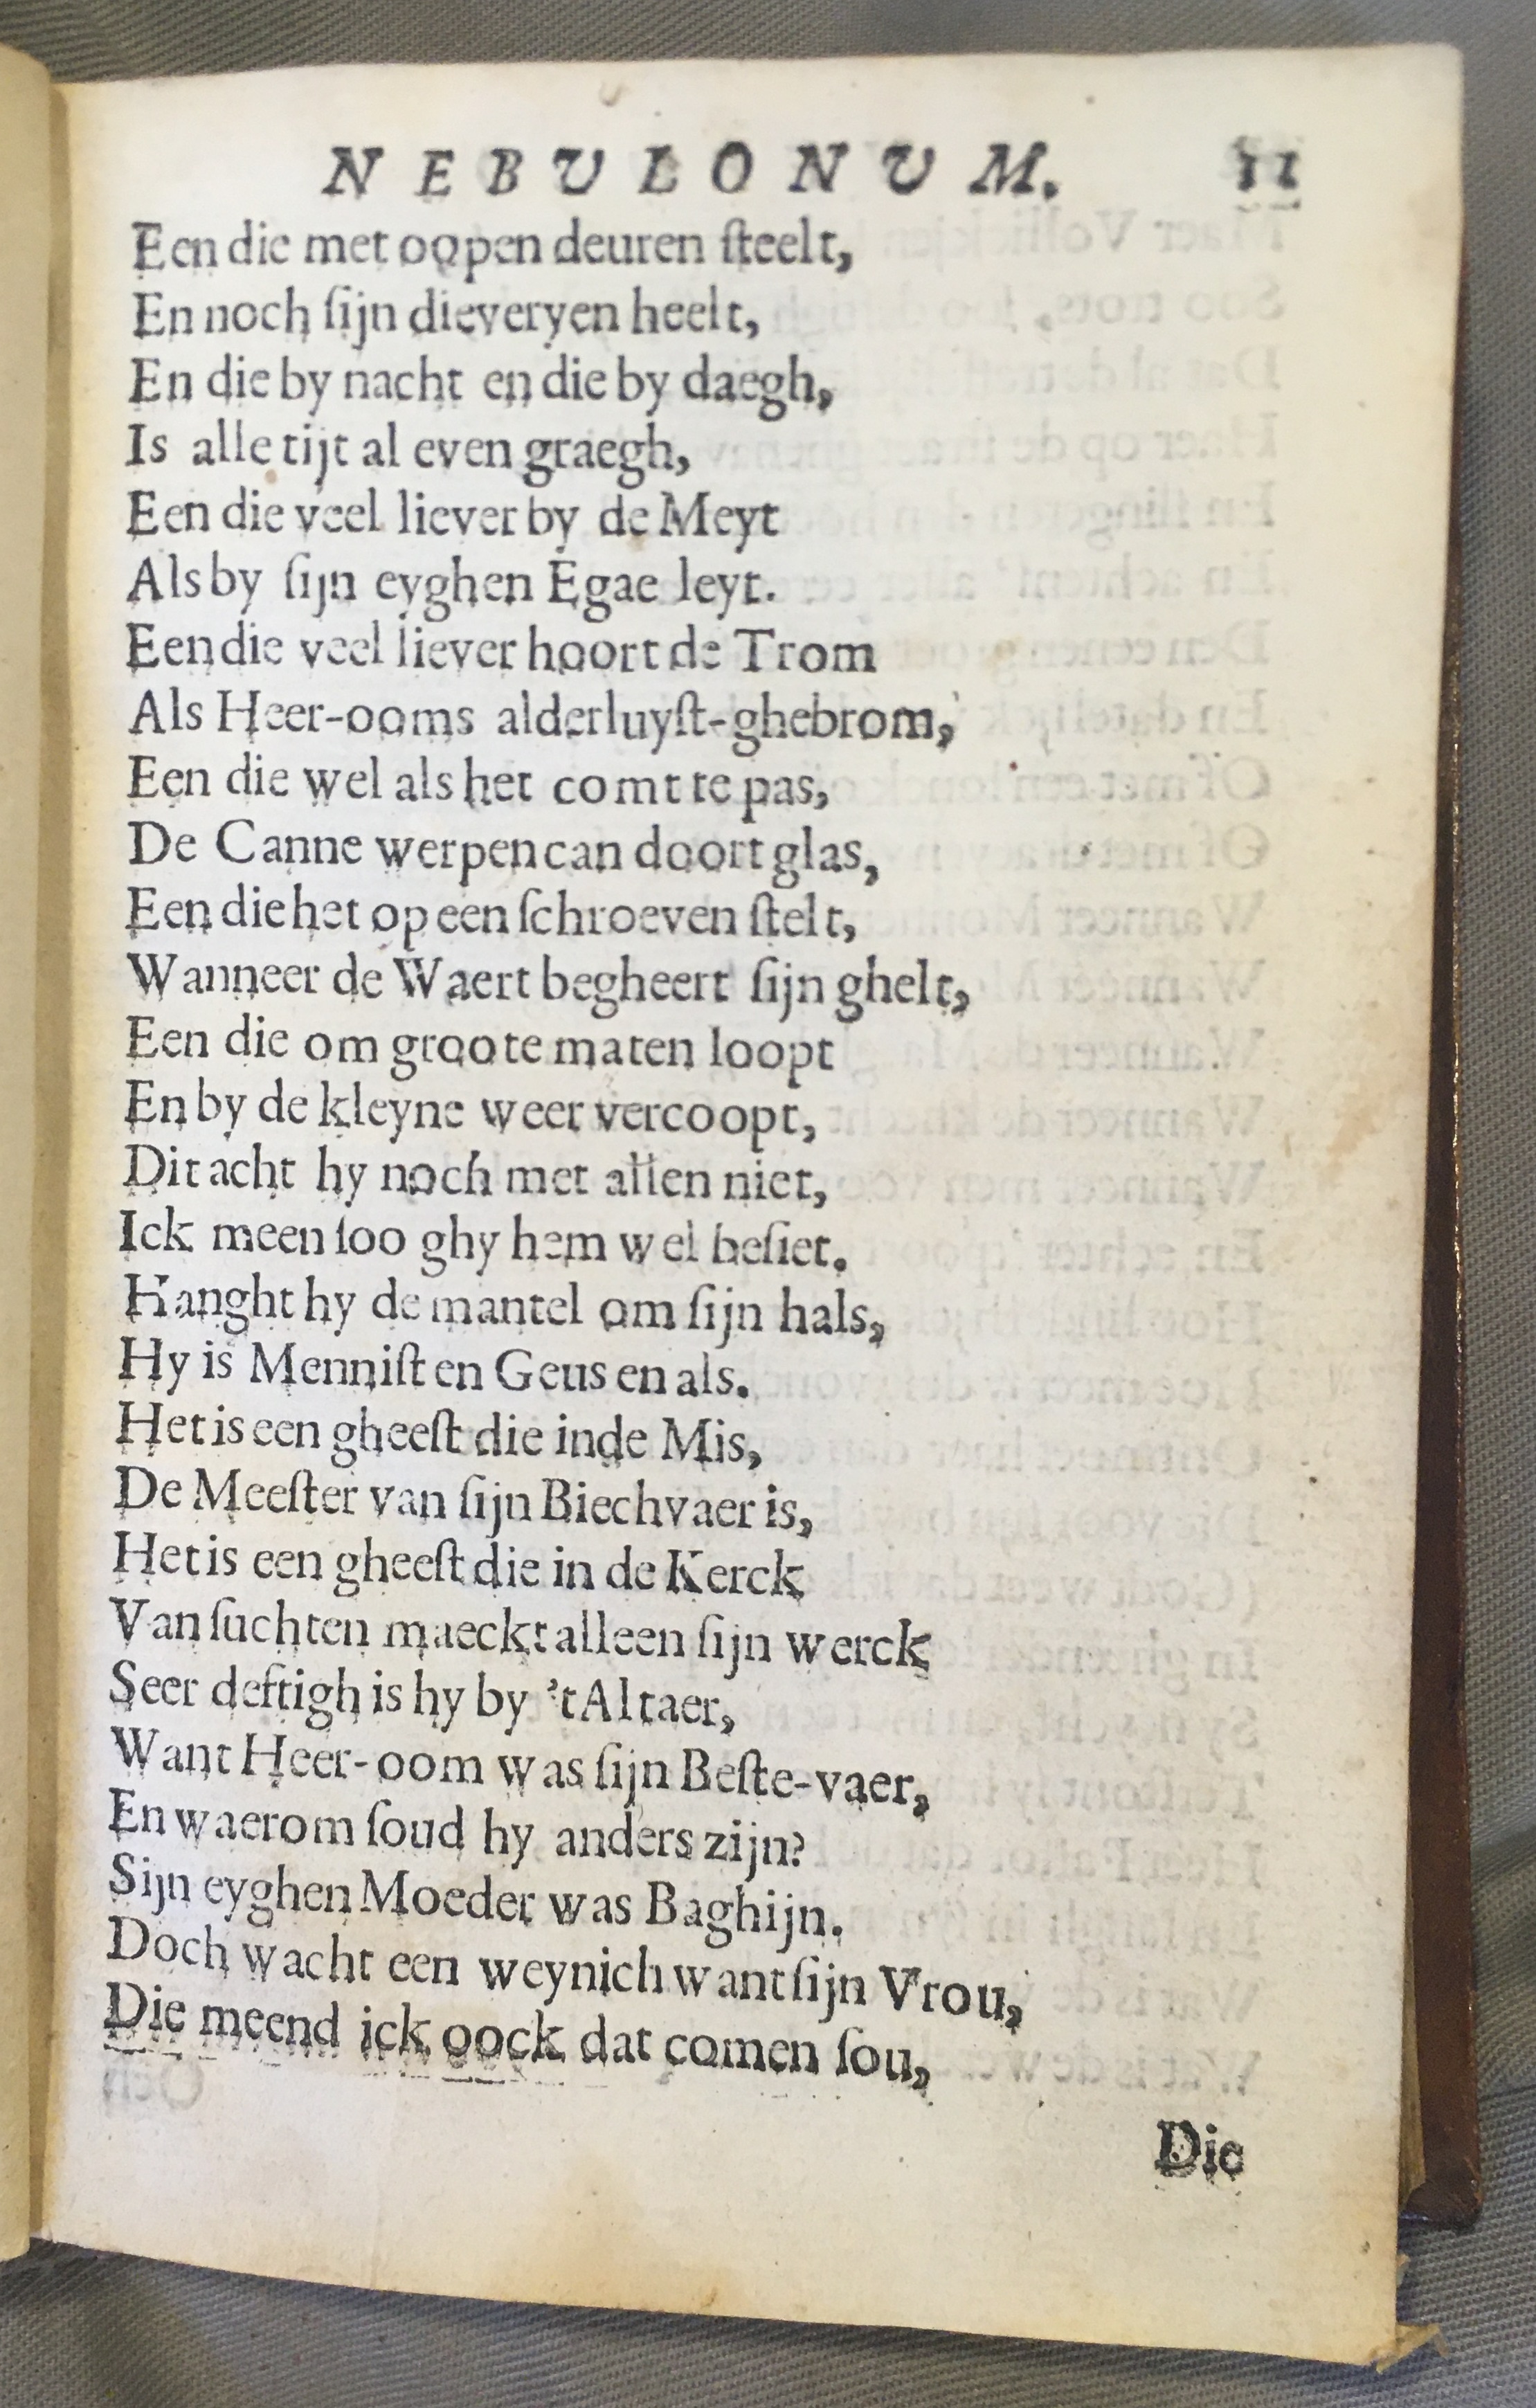 NEBULONUM. 11
Een die met oopen deuren ſteelt,
En noch ſijn dieveryen heelt,
En die by nacht en die by daegh,
Is alle tijt al even graegh,
Een die veel liever by de Meyt
Als by ſijn eyghen Egae leyt.
Een die veel liever hoort de Trom
Als Heer-ooms alderluyſt-ghebrom,
Een die wel als het comt te pas,
De Canne werpen can doort glas,
Een die het op een ſchroeven ſtelt,
Wanneer de Waert begheert ſijn ghelt,
Een die om groote maten loopt
En by de kleyne weer vercoopt,
Dit acht hy noch met allen niet,
Ick meen ſoo ghy hem wel beſiet.
Hanght hy de mantel om ſijn hals,
Hy is Menniſt en Geus en als.
Het is een gheeſt die inde Mis,
De Meeſter van ſijn Biechvaer is,
Het is een gheeſt die in de Kerck
Van ſuchten maeckt alleen ſijn werck
Seer deftigh is hy by 't Altaer,
Want Heer-oom was ſijn Beſte-vaer,
En waerom ſoud hy anders zijn?
Sijn eyghen Moeder was Baghijn.
Doch wacht een weynich want ſijn Vrou,
Die meend ick oock dat comen ſou,
Die